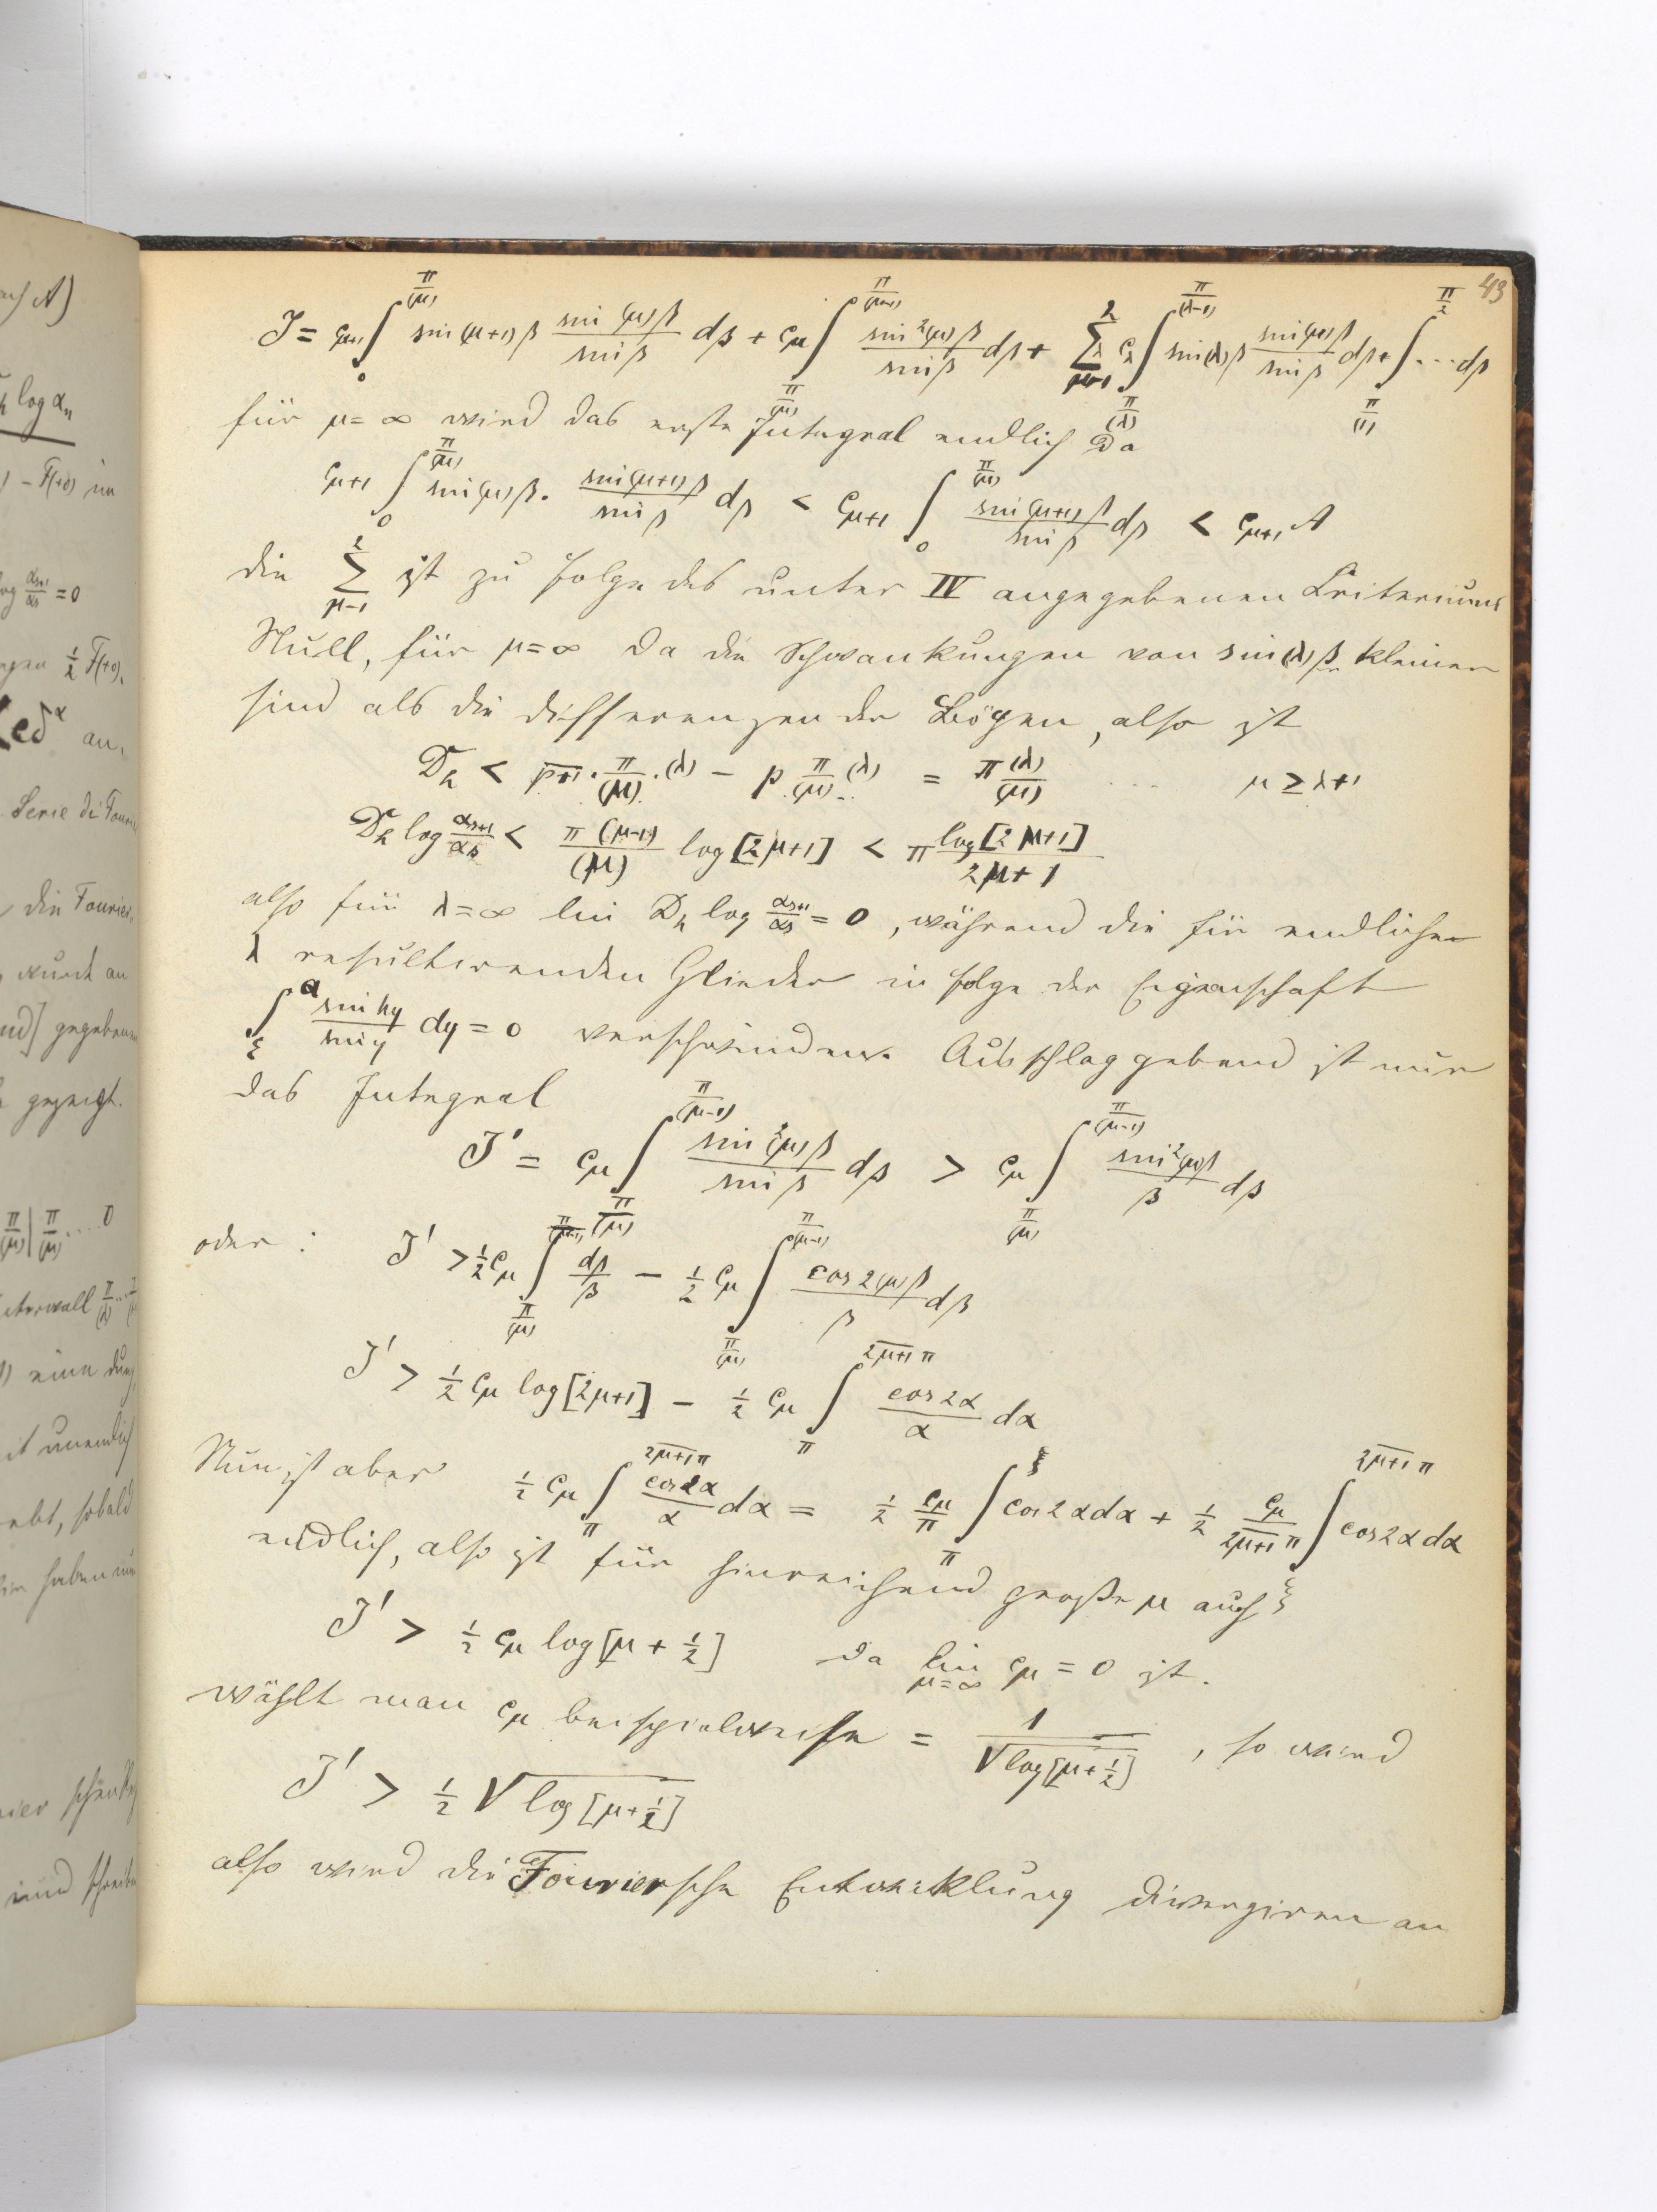 43
J = c_{μ+1} ∫_0^{π/(μ)} sin(μ+1)β \frac{sin(μ)β}{sin β} dβ + c_μ ∫_{π/(μ)}^{π/(μ-1)} \frac{sin²(μ)β}{sin β} dβ + Σ_{μ-1}^{2} c_λ ∫_{π/(λ)}^{π/(λ-1)} sin(λ)β \frac{sin(μ)β}{sin β} dβ + ∫_{π/(1)}^{π/2} ... dβ
für μ = ∞ wird das erste Integral endlich da
c_{μ+1} ∫_0^{π/(μ)} sin(μ)β · \frac{sin(μ+1)β}{sin β} dβ < c_{μ+1} ∫_0^{π/(μ)} \frac{sin(μ+1)β}{sin β} dβ < c_{μ+1} A
die Σ_{μ-1}^{2} ist zu folge des unter IV angegebenen Criteriums
Null, für μ = ∞ da die Schwankungen von sin(λ)β kleiner
sind als die differenzen der Bögen, also ist
D_h < \overline{p+1} · \frac{π}{(μ)} · (λ) − p \frac{π}{(μ)} (λ) = π \frac{(λ)}{(μ)} ... μ ≥ λ+1
D_h log \frac{α_{s+1}}{α_s} < \frac{π(μ-1)}{(μ)} log[2μ+1] < π \frac{log[2μ+1]}{2μ+1}
also für λ = ∞ lim D_h log \frac{α_{s+1}}{α_s} = 0, während die für endliche
λ resultirenden Glieder in folge der Eigenschaft
∫_ξ^a \frac{sin hy}{sin y} dy = 0 verschwinden. Ausschlaggebend ist nur
das Integral
J' = c_μ ∫_{π/(μ)}^{π/(μ-1)} \frac{sin²(μ)β}{sin β} dβ > c_μ ∫_{π/(μ)}^{π/(μ-1)} \frac{sin²(μ)β}{β} dβ
oder : J' > ½ c_μ ∫_{π/(μ)}^{π/(μ-1)} \frac{dβ}{β} − ½ c_μ ∫_{π/(μ)}^{π/(μ-1)} \frac{cos 2(μ)β}{β} dβ
J' > ½ c_μ log[2μ+1] − ½ c_μ ∫_π^{\overline{2μ+1} π} \frac{cos 2α}{α} dα
Nun ist aber ½ c_μ ∫_π^{\overline{2μ+1} π} \frac{cos 2α}{α} dα = ½ \frac{c_μ}{π} ∫_π^ξ cos 2α dα + ½ \frac{c_μ}{\overline{2μ+1} π} ∫_ξ^{\overline{2μ+1} π} cos 2α dα
endlich, also ist für hinreichend große μ auch
J' > ½ c_μ log[μ + ½] da lim_{μ=∞} c_μ = 0 ist.
wählt man c_μ beispielweise = \frac{1}{√log[μ+½]}, so wird
J' > ½ √log[μ+½]
also wird die Fouriersche Entwicklung divergiren an